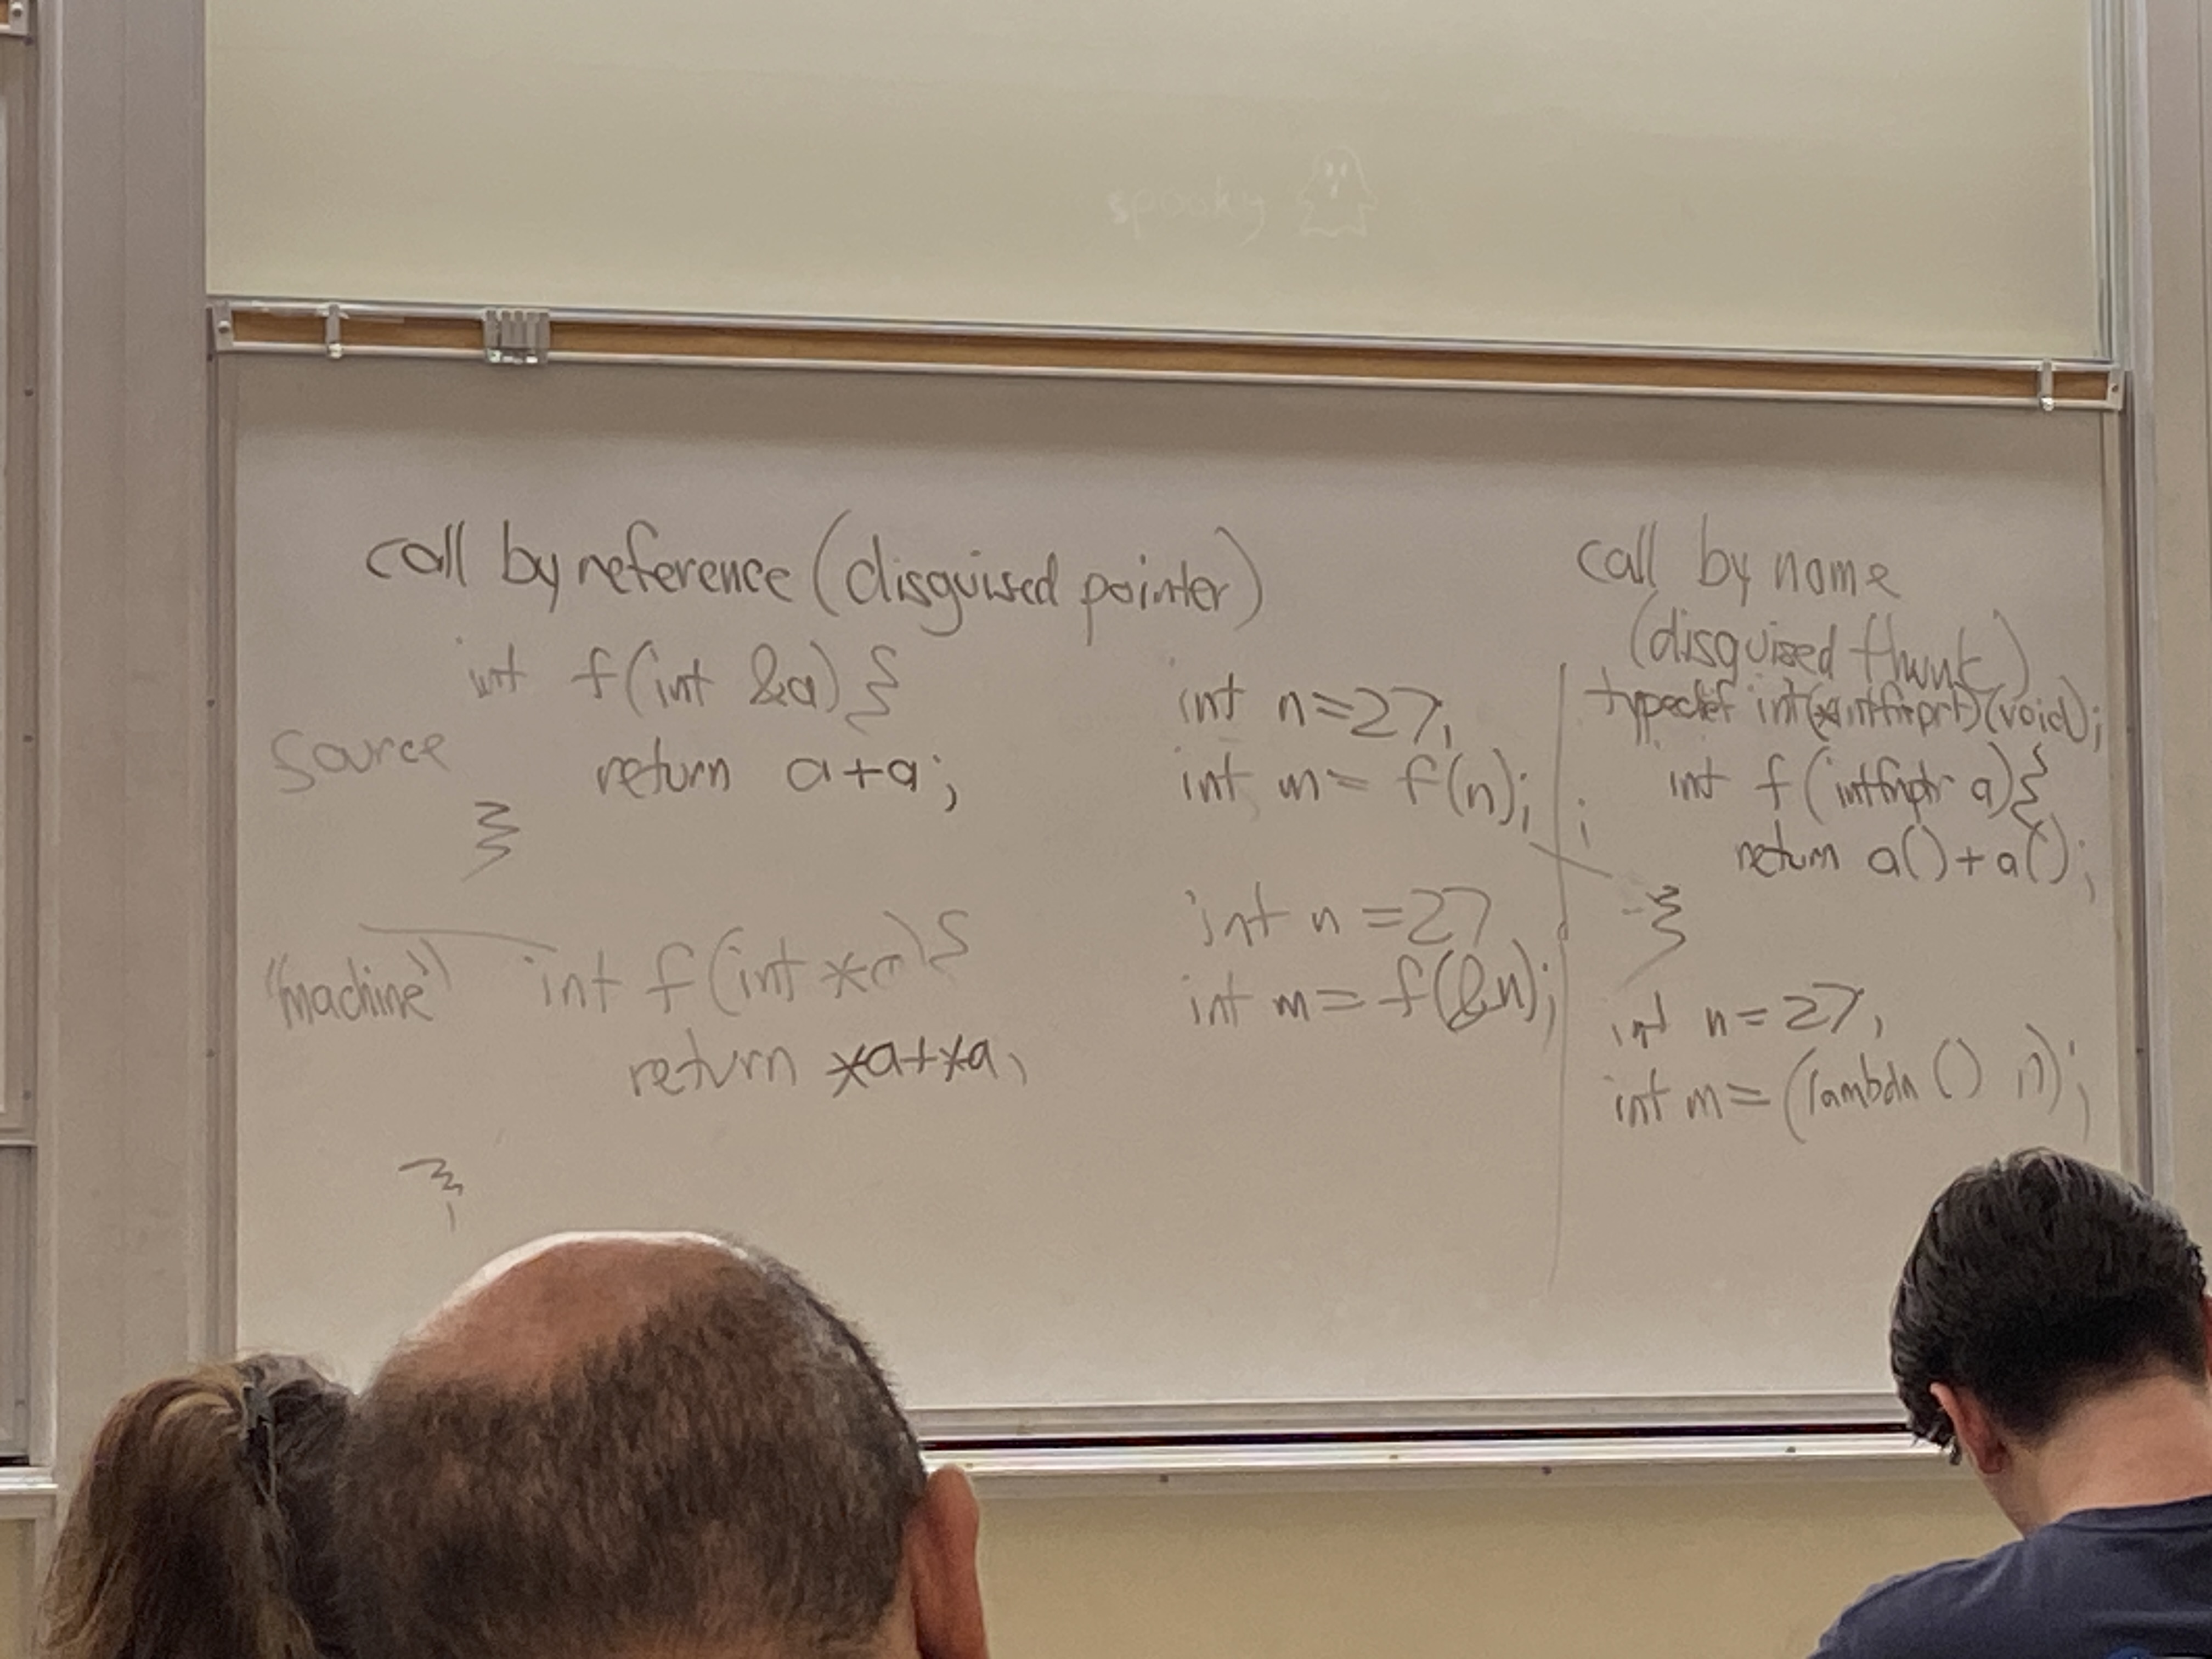 spooky
call by reference (disguised pointer)
int f(int &a) {
Source
return a+a;
}
int n=27;
int m= f(n);
"machine"
int f(int *a) {
return *a+*a;
}
int n=27
int m= f(&n);
call by name
(disguised thunk)
typedef int(*intfnptr)(void);
int f(intfnptr a){
return a()+a();
}
int n=27;
int m=(lambda () n);